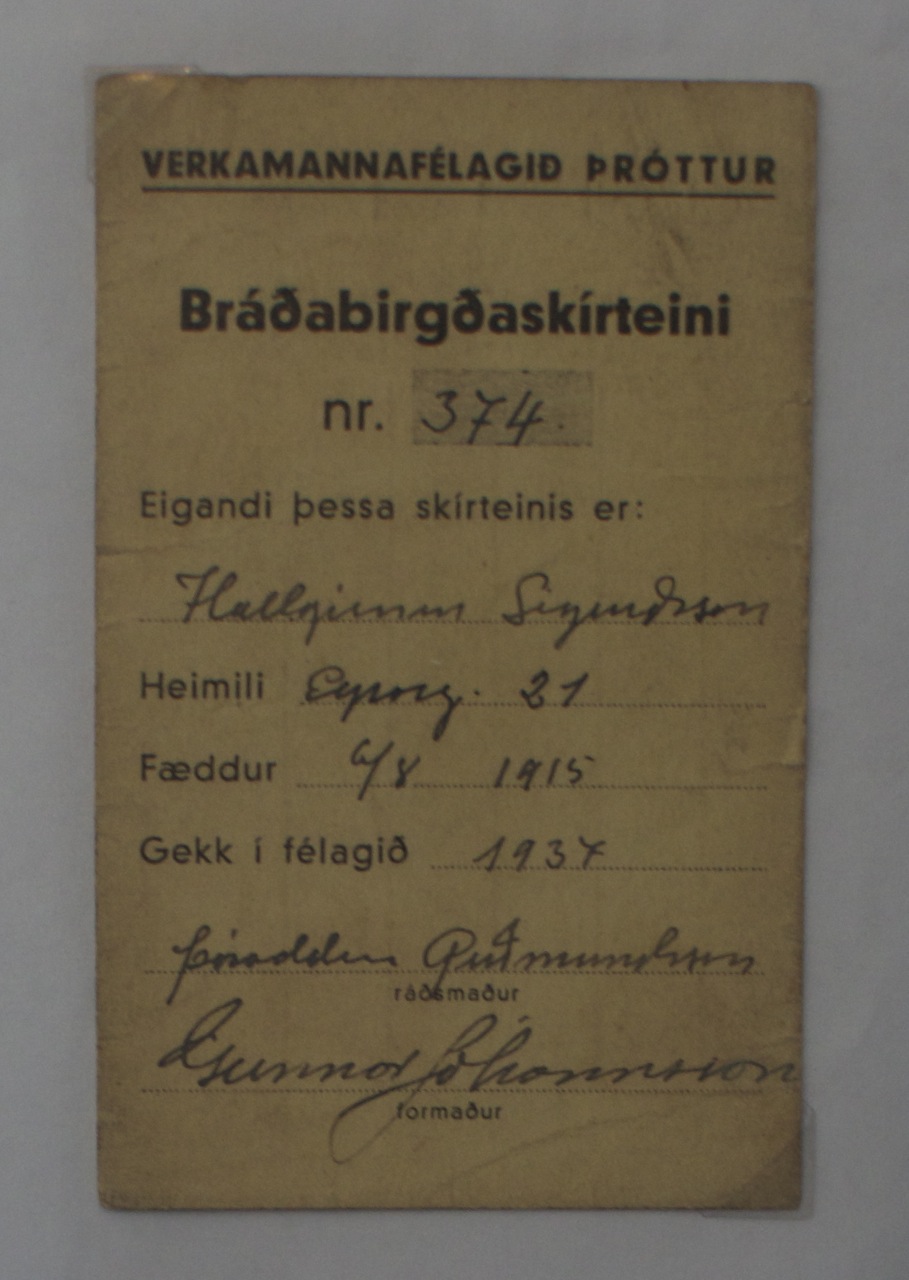 VERKAMANNAFÉLAGIÐ ÞRÓTTUR
Bráðabirgðaskírteini
nr. 374.
Eigandi þessa skírteinis er:
Hallgrímur Sigurðsson
Heimili 21
Fæddur 6/8 1915
Gekk í félagið 1937
Þóroddur Guðmundsson
ráðsmaður
Gunnar Jóhannsson
formaður